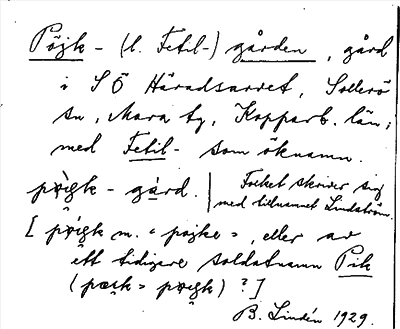 Pöjk- (l. Fetil-) gården, gård
i SÖ Häradsarvet, Sollerö
sn, Mora tg, Kopparb. län;
med Fetil- som öknamn.
pɵigk-gård. | Folket skriver sig
med tillnamnet Lindström.
[pɵigk m. "pojke", eller av
ett tidigare soldatnamn Pik
(pæsk > pɵigk) ?]
B. Lindén 1929.